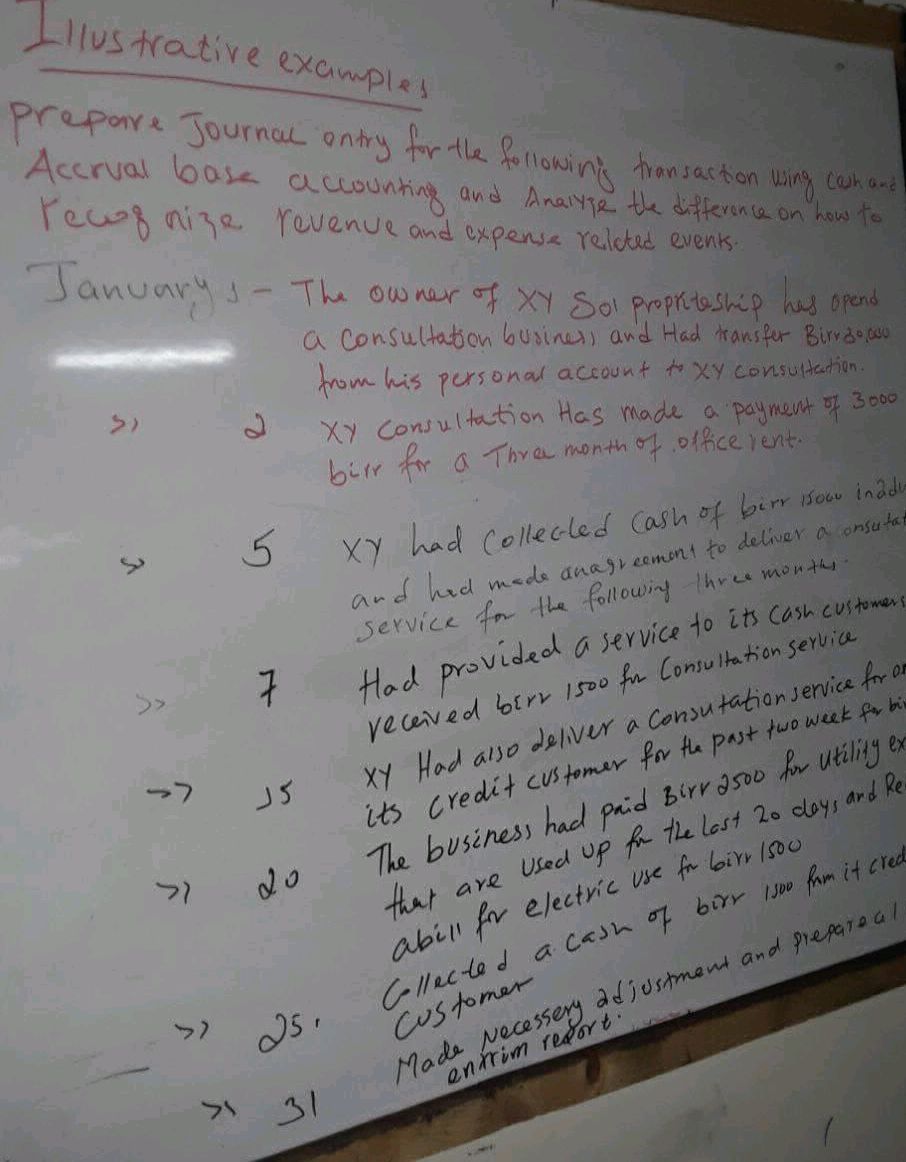 Illustrative examples
prepare Journal entry for the following transaction using cash and
Accrual base accounting and Analyze the difference on how to
recognize revenue and expense related events.
January 1 - The owner of XY Sol propriteship has opend
a consultation business and Had transfer Birr
from his personal account to XY consultation.
>> 2 XY consultation Has made a payment of 3000
birr for a Three month of office rent.
>> 5 XY had collected cash of birr 15000 in
and had made anagreement to deliver a
service for the following three months.
>> 7 Had provided a service to its cash customers
received birr 1500 for Consultation service
>> 15 XY Had also deliver a Consutation service for
its credit customer for the past two week for
The business had paid Birr 2500 for utility
>> 20 that are used up for the last 20 days and
abill for electric use for birr 1500
>> 25. Collected a cash of birr 1500 from it
Customer
>> 31 Made Necessery adjustment and prepare
enterim report.